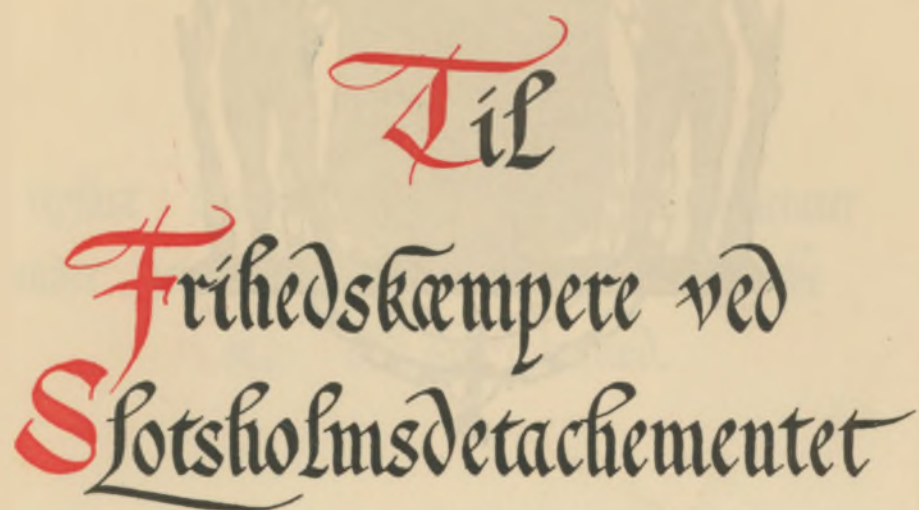 Til
Frihedskæmpere ved
Slotsholmsdetachementet